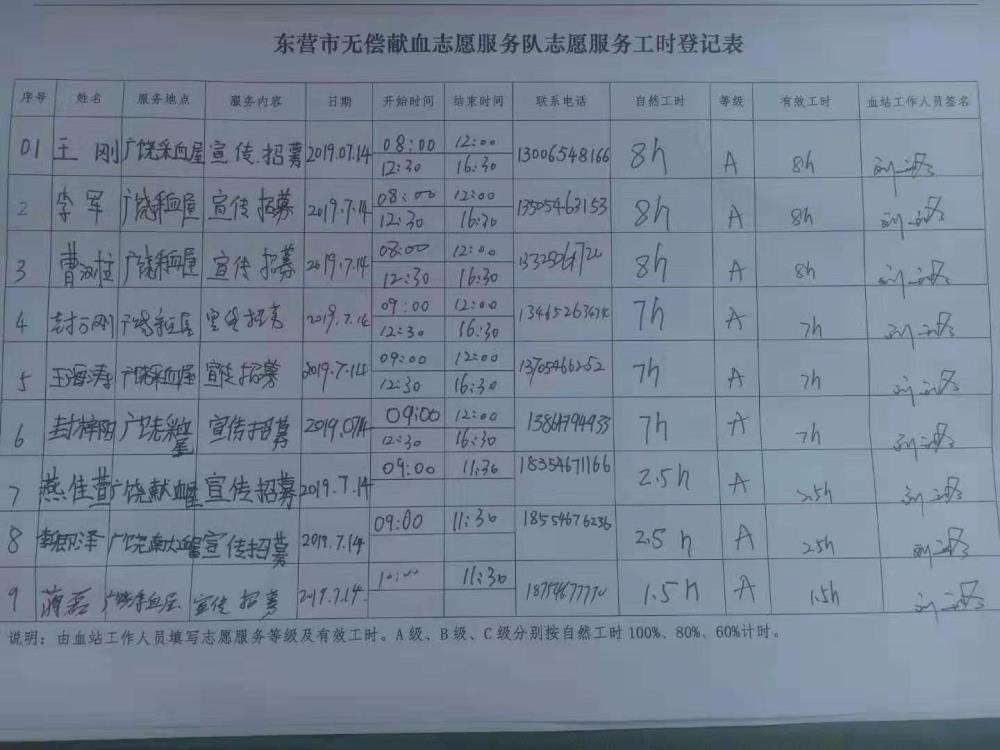 东营市无偿献血志愿服务队志愿服务工时登记表
序号 姓名 服务地点 服务内容 日期 开始时间 结束时间 联系电话 自然工时 等级 有效工时 血站工作人员签名
01 王刚 广饶采血屋 宣传招募 2019.07.14 08:00 12:00 13006548166 8h A 8h
12:30 16:30
2 李军 广饶采血屋 宣传招募 2019.7.14 08:00 12:00 13505463153 8h A 8h
12:30 16:30
3 曹 广饶采血屋 宣传招募 2019.7.14 08:00 12:00 8h A 8h
12:30 16:30
4 封万刚 广饶采血屋 宣传招募 2019.7.14 09:00 12:00 7h A 7h
12:30 16:30
5 王海涛 广饶采血屋 宣传招募 2019.7.14 09:00 12:00 13705466252 7h A 7h
12:30 16:30
6 封梓阳 广饶采血屋 宣传招募 2019.0714 09:00 12:00 13864794933 7h A 7h
12:30 16:30
7 燕佳萱 广饶献血屋 宣传招募 2019.7.14 09:00 11:30 18354671166 2.5h A 2.5h
8 广饶献血屋 宣传招募 2019.7.14 09:00 11:30 18554676236 2.5h A 2.5h
9 蒋磊 广饶采血屋 宣传招募 2019.7.14. 10:00 11:30 1.5h A 1.5h
说明：由血站工作人员填写志愿服务等级及有效工时。A级、B级、C级分别按自然工时100%、80%、60%计时。